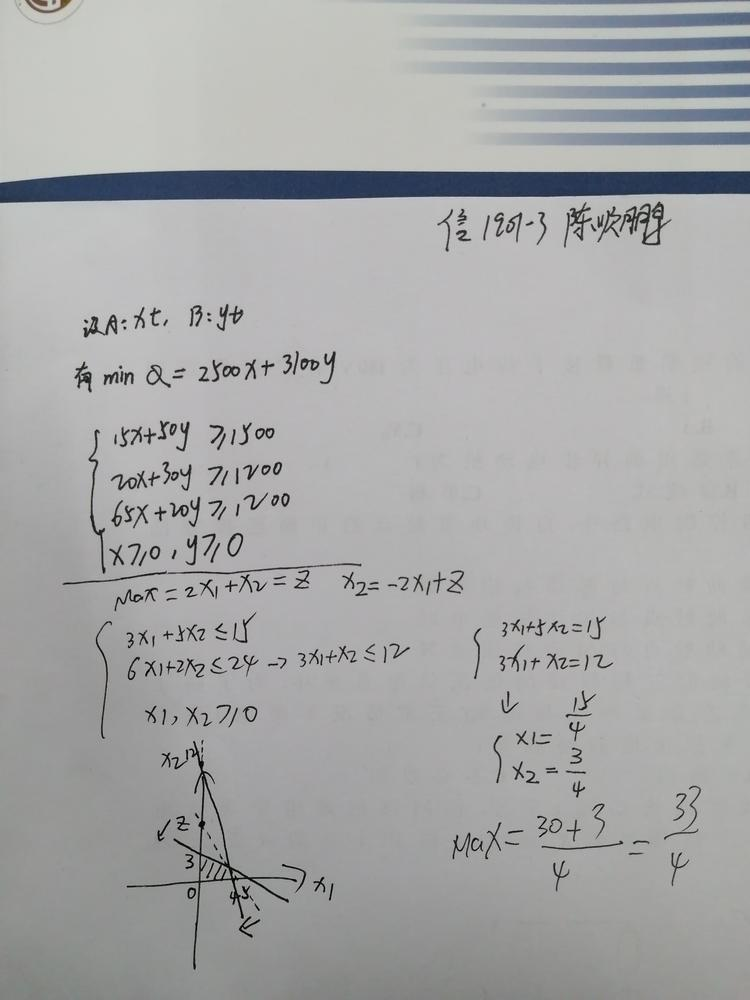 信1901-3 陈顺鹏
设A:xt, B:yt
有 min Q = 2500x+3100y
15x+50y ≥1500
20x+30y ≥1200
65x+20y ≥1200
x≥0, y≥0
Max = 2x1+x2 = Z x2=-2x1+Z
3x1+5x2≤15
6x1+2x2≤24→3x1+x2≤12
x1, x2≥0
3x1+5x2=15
3x1+x2=12
↓
x1=15/4
x2=3/4
Max=(30+3)/4=33/4
x2 12
Z
3
0 4 5 x1